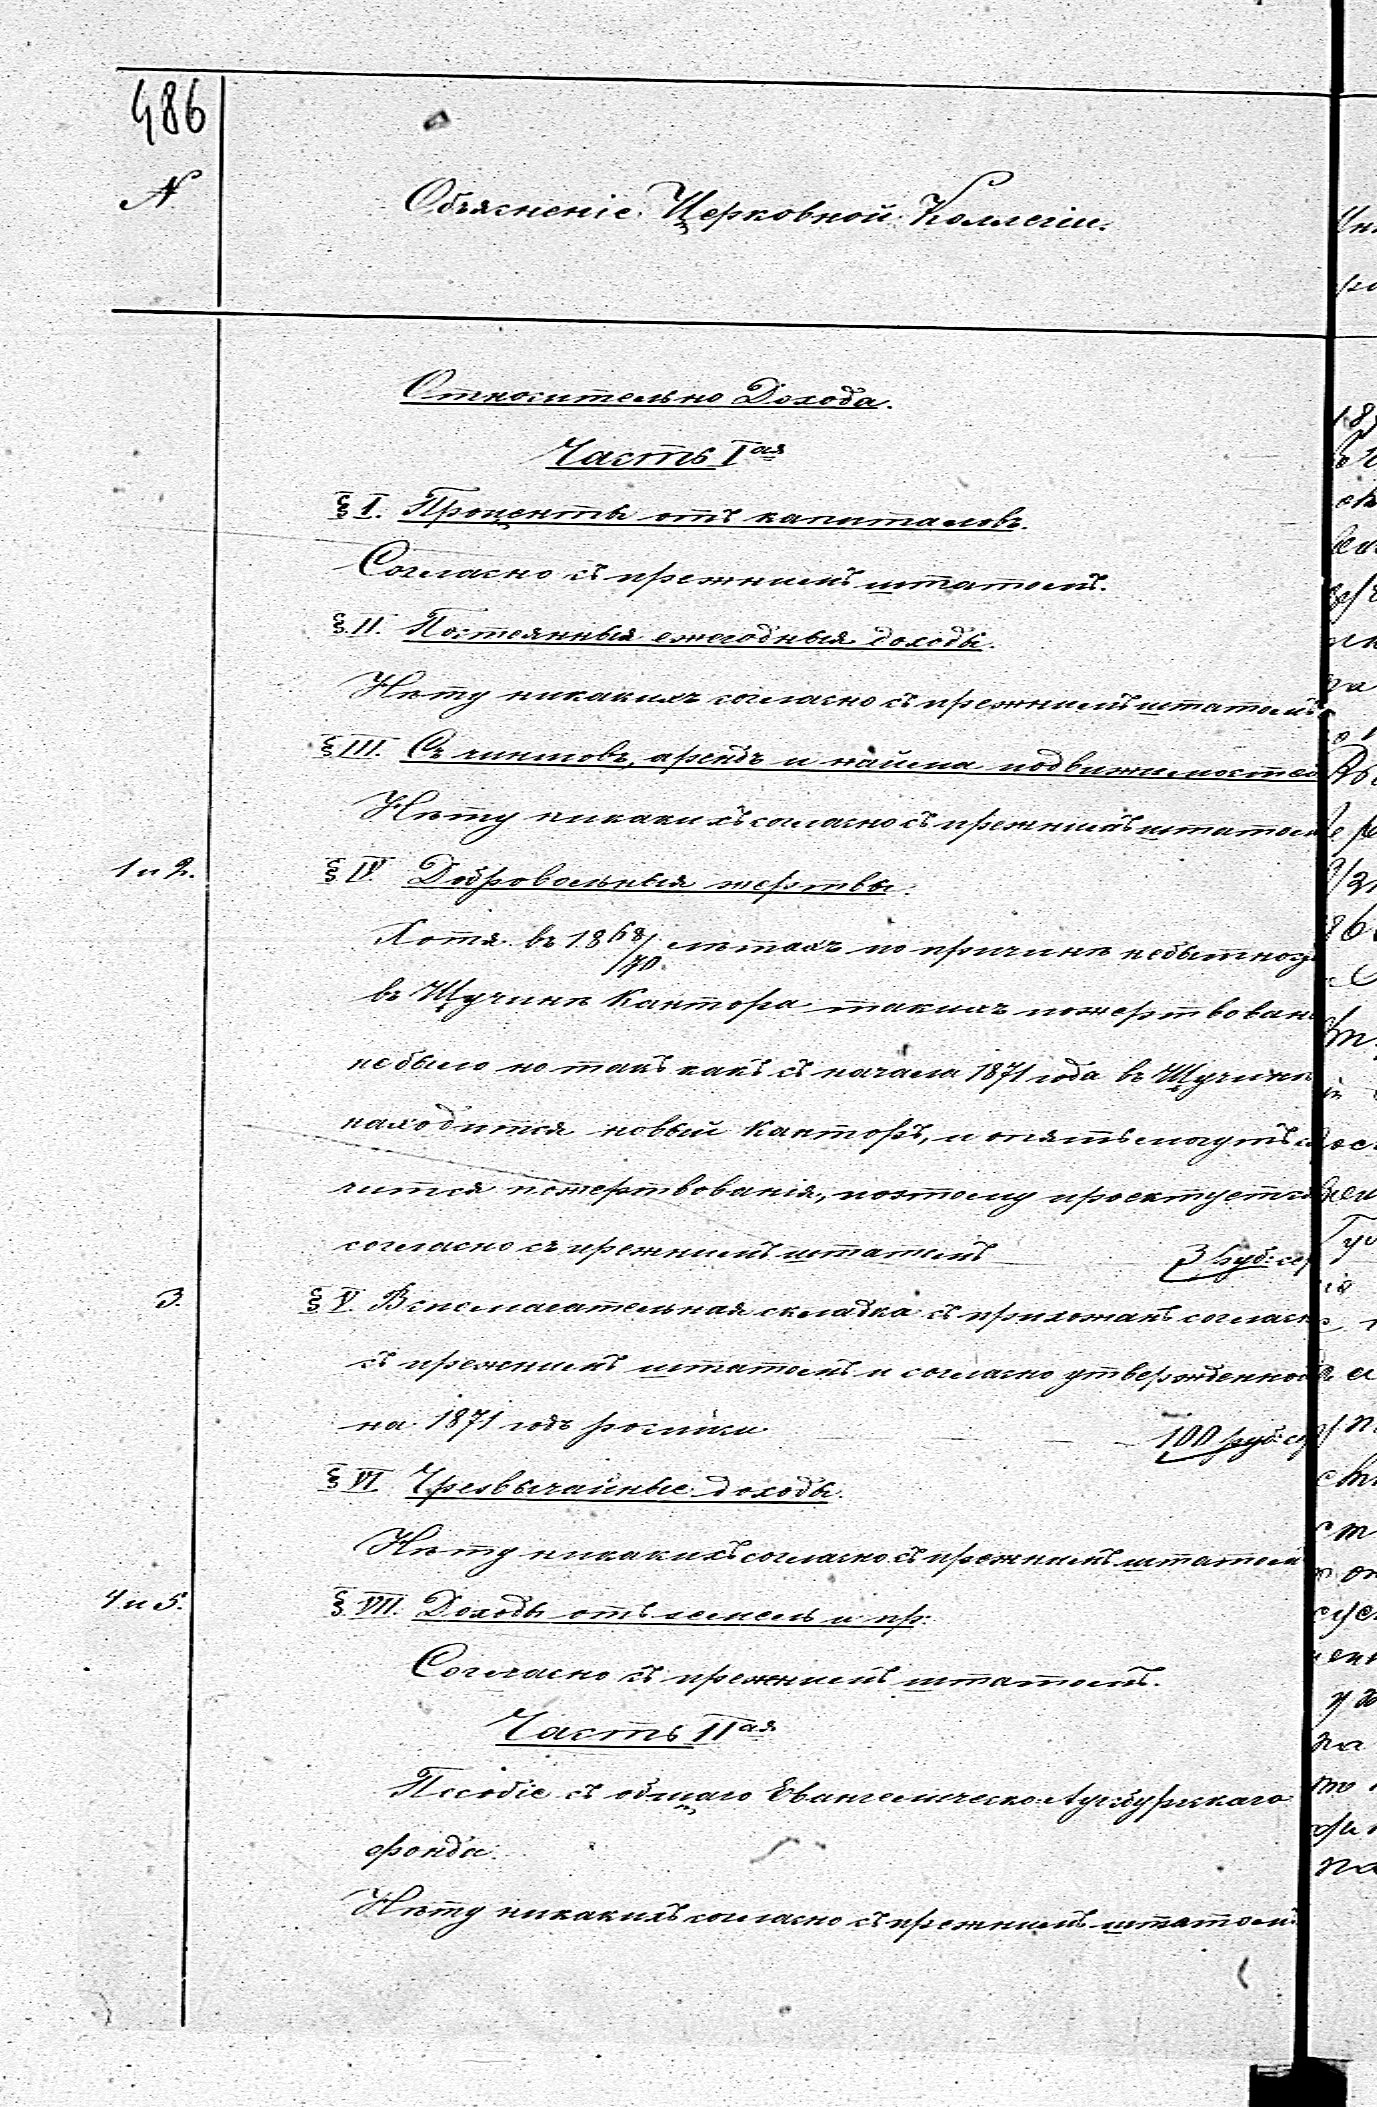 486
N
Объясненіе Церковной Коллегіи.
Относительно Дохода.
Часть I ая
§ I. Проценты отъ капиталовъ.
Согласно съ прежнимъ штатомъ.
§ II. Постоянныя ежегодныя доходы.
Нѣту никакихъ согласно съ прежнимъ штатомъ
§ III. Съ чиншовъ, арендъ и найма подвижимостей
Нѣту никакихъ согласно съ прежнимъ штатом
1 и 2. § IV. Добровольныя жертвы.
Хотя въ 1868/70. лѣтахъ по причинѣ небытнос
въ Щучинѣ Кантора такихъ пожертвован
небыло но такъ какъ съ начала 1871 года въ Щучинѣ
находится новый Канторъ, и опять могутъ
чится пожертвованія, поэтому проектуется
согласно съ прежнимъ штатомъ 3 руб: сер
3. § V. Вспомагательная складка съ прихожанъ соглас
съ прежнимъ штатомъ и согласно утвержденной
на 1871 годъ росписи 100 руб: сер
§ VI. Чрезвычайные доходы.
Нѣту никакихъ согласно съ прежнимъ штатом
4 и 5. § VII. Доходы отъ земель и пр.
Согласно съ прежнимъ штатомъ.
Часть II ая
Пособіе съ общаго Евангелическо-Аугсбурскаго
фонда.
Нѣту никакихъ согласно съ прежнимъ штатомъ